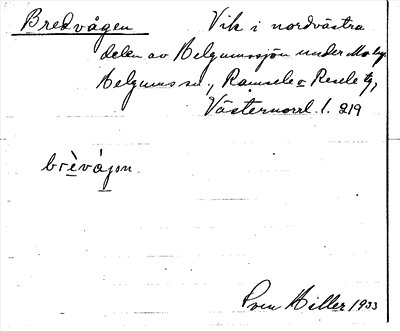 Bredvågen Vik i nordvästra
delen av Helgumssjön under Moby,
Helgums sn., Ramsele o Resele tg,
Västernorrl. l. 219
brèvájon.
Sven Hiller 1933